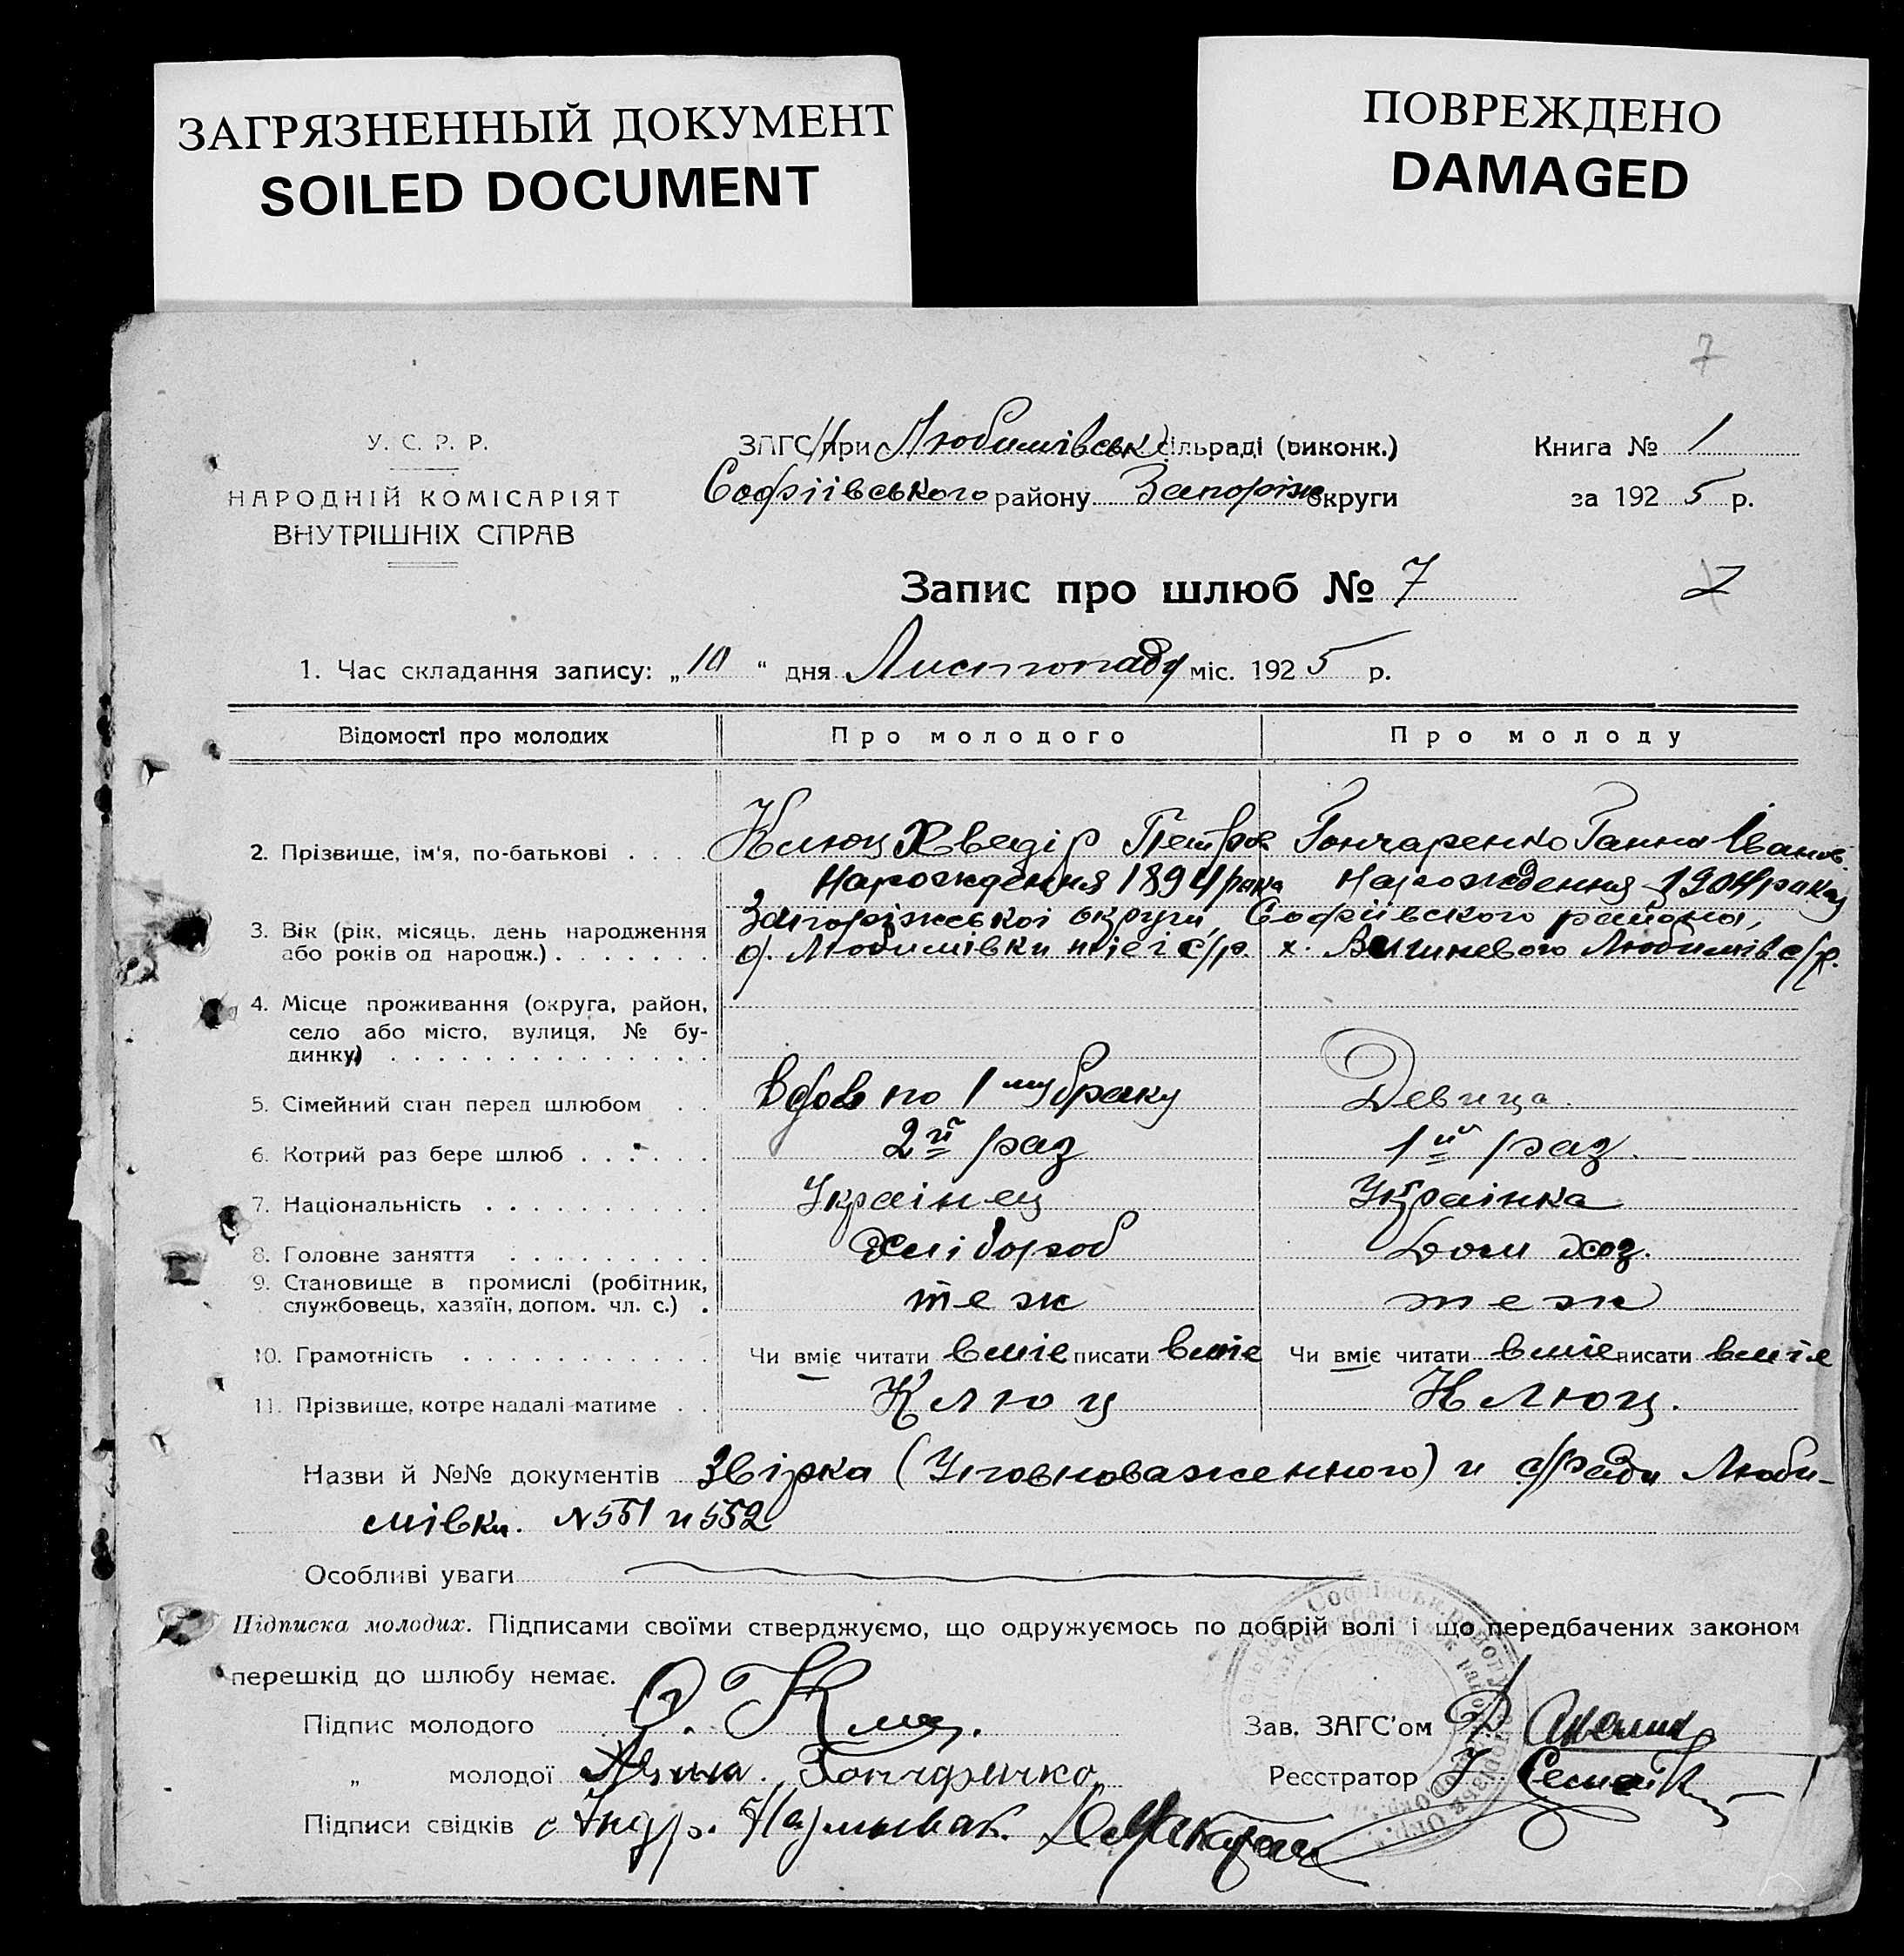 ЗАГРЯЗНЕННЫЙ ДОКУМЕНТ
SOILED DOCUMENT
ПОВРЕЖДЕНО
DAMAGED
7
У. С. Р. Р.
НАРОДНІЙ КОМІСАРІЯТ
ВНУТРІШНІХ СПРАВ
ЗАГС при Любимівськ сільраді (виконк.)
Софіївського району Запоріж округи
Книга № 1
за 192 5 р.
Запис про шлюб № 7
1. Час складання запису: „ 10 “ дня Листопаду міс. 192 5 р.
Відомості про молодих Про молодого Про молоду
2. Прізвище, ім'я, по-батькові . . . . Клюц Хведір Петров Гончаренко Ганна Іванов
Народження 1894 рока Народження 1904 рока
3. Вік (рік, місяць, день народження Запоріжської округи, Софіївского району,
або років од народж.) . . . . . . . с. Любимівки тієі с/р. х. Вишневого Любимів с/р.
4. Місце проживання (округа, район,
село або місто, вулиця, № бу-
динку) . . . . . . . . . . . . . .
5. Сімейний стан перед шлюбом . . Вдов по 1му браку Девица.
6. Котрий раз бере шлюб . . . . . . 2й раз 1й раз.
7. Національність . . . . . . . . . . Украінец Украінка
8. Головне заняття . . . . . . . . . Хлібороб Дом хоз.
9. Становище в промислі (робітник,
службовець, хазяїн, допом. чл. с.) . теж теж
10. Грамотність . . . . . . . . . . . Чи вміє читати вміе писати вміе Чи вміє читати вміе писати вміе
11. Прізвище, котре надалі матиме . . Клюц Клюц.
Назви й №№ документів Звірка (Уповноваженного) и с/ради Люби-
мівки. № 551 и 552
Особливі уваги
Підписка молодих. Підписами своїми стверджуємо, що одружуємось по добрій волі і що передбачених законом
перешкід до шлюбу немає.
Підпис молодого
Зав. ЗАГС'ом
„ молодої Гончаренко
Реєстратор
Підписи свідків